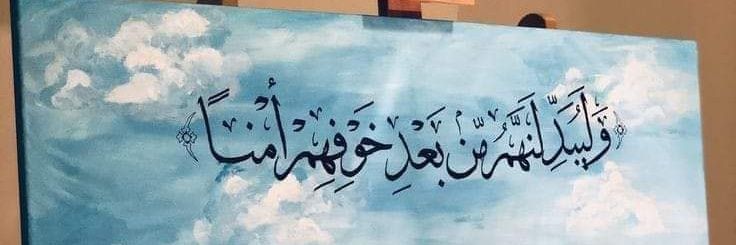 ﴿وَلَيُبَدِّلَنَّهُمْ مِّنْ بَعْدِ خَوْفِهِمْ أَمْنًا﴾